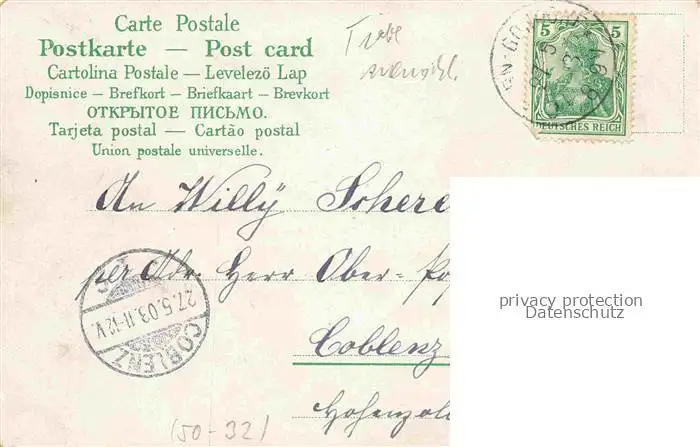 Carte Postale
Postkarte — Post card
Cartolina Postale — Levelező Lap
Dopisnice — Brefkort — Briefkaart — Brevkort
ОТКРЫТОЕ ПИСЬМО.
Tarjeta postal — Cartão postal
Union postale universelle.
5 5
DEUTSCHES REICH
An Willy Schere
per Adr. Herr Ober-Po
Coblenz
Hohenzol
27.5.03.11-12V.
COBLENZ
privacy protection
Datenschutz
(50-32)